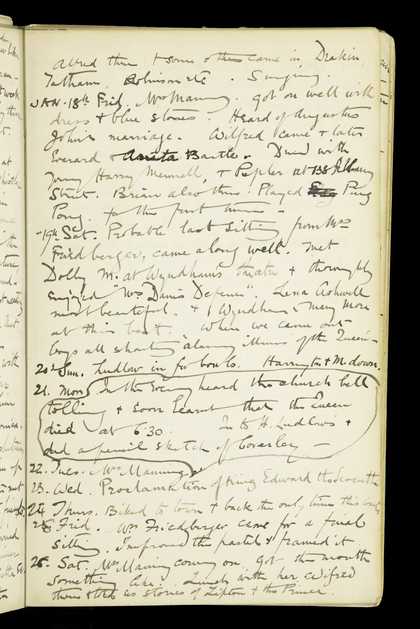 alfred there & some others came in, Deakin,
Tatham, Robinson etc. Singing.
JAN. 18th Frid. Mrs Manning. got on well with
dress & blue stones. Heard of Augustus
John's marriage. Wilfred came & later
Everard & Anita Bartle. Dined with
Harry Mennell, & Pepler at 138
Street. Brian also there. Played Ping
Pong. for the first time -
19th Sat. Probable last sitting from Mrs
Friedberger, came along well. Met
Dolly M. at Wyndham's Theatre & thoroughly
enjoyed "Mrs Dane's Defence". Lena Ashwell
most beautiful. & Wyndham & Mary Moore
at their best. When we came out
boys all shouting "alarming illness of the Queen".
20th Sun. Ludlow in for boards. Harrington & M. down.
21. Mon In the evening heard the church bell
tolling & soon learnt that the Queen
died at 6.30. In to H. Ludlows &
did a pencil sketch of Coverley —
22. Tues. Mrs Manning
23. Wed. Proclamation of King Edward the Seventh
24 Thurs. Biked to town & back the only time this
25 Frid. Mrs Friedberger came for a final
sitting. Improved the pastel & framed it
26. Sat. Mrs Manning coming on. got the mouth
something like. Lunch with her. Wilfred
there & told us stories of Lipton & the Prince.